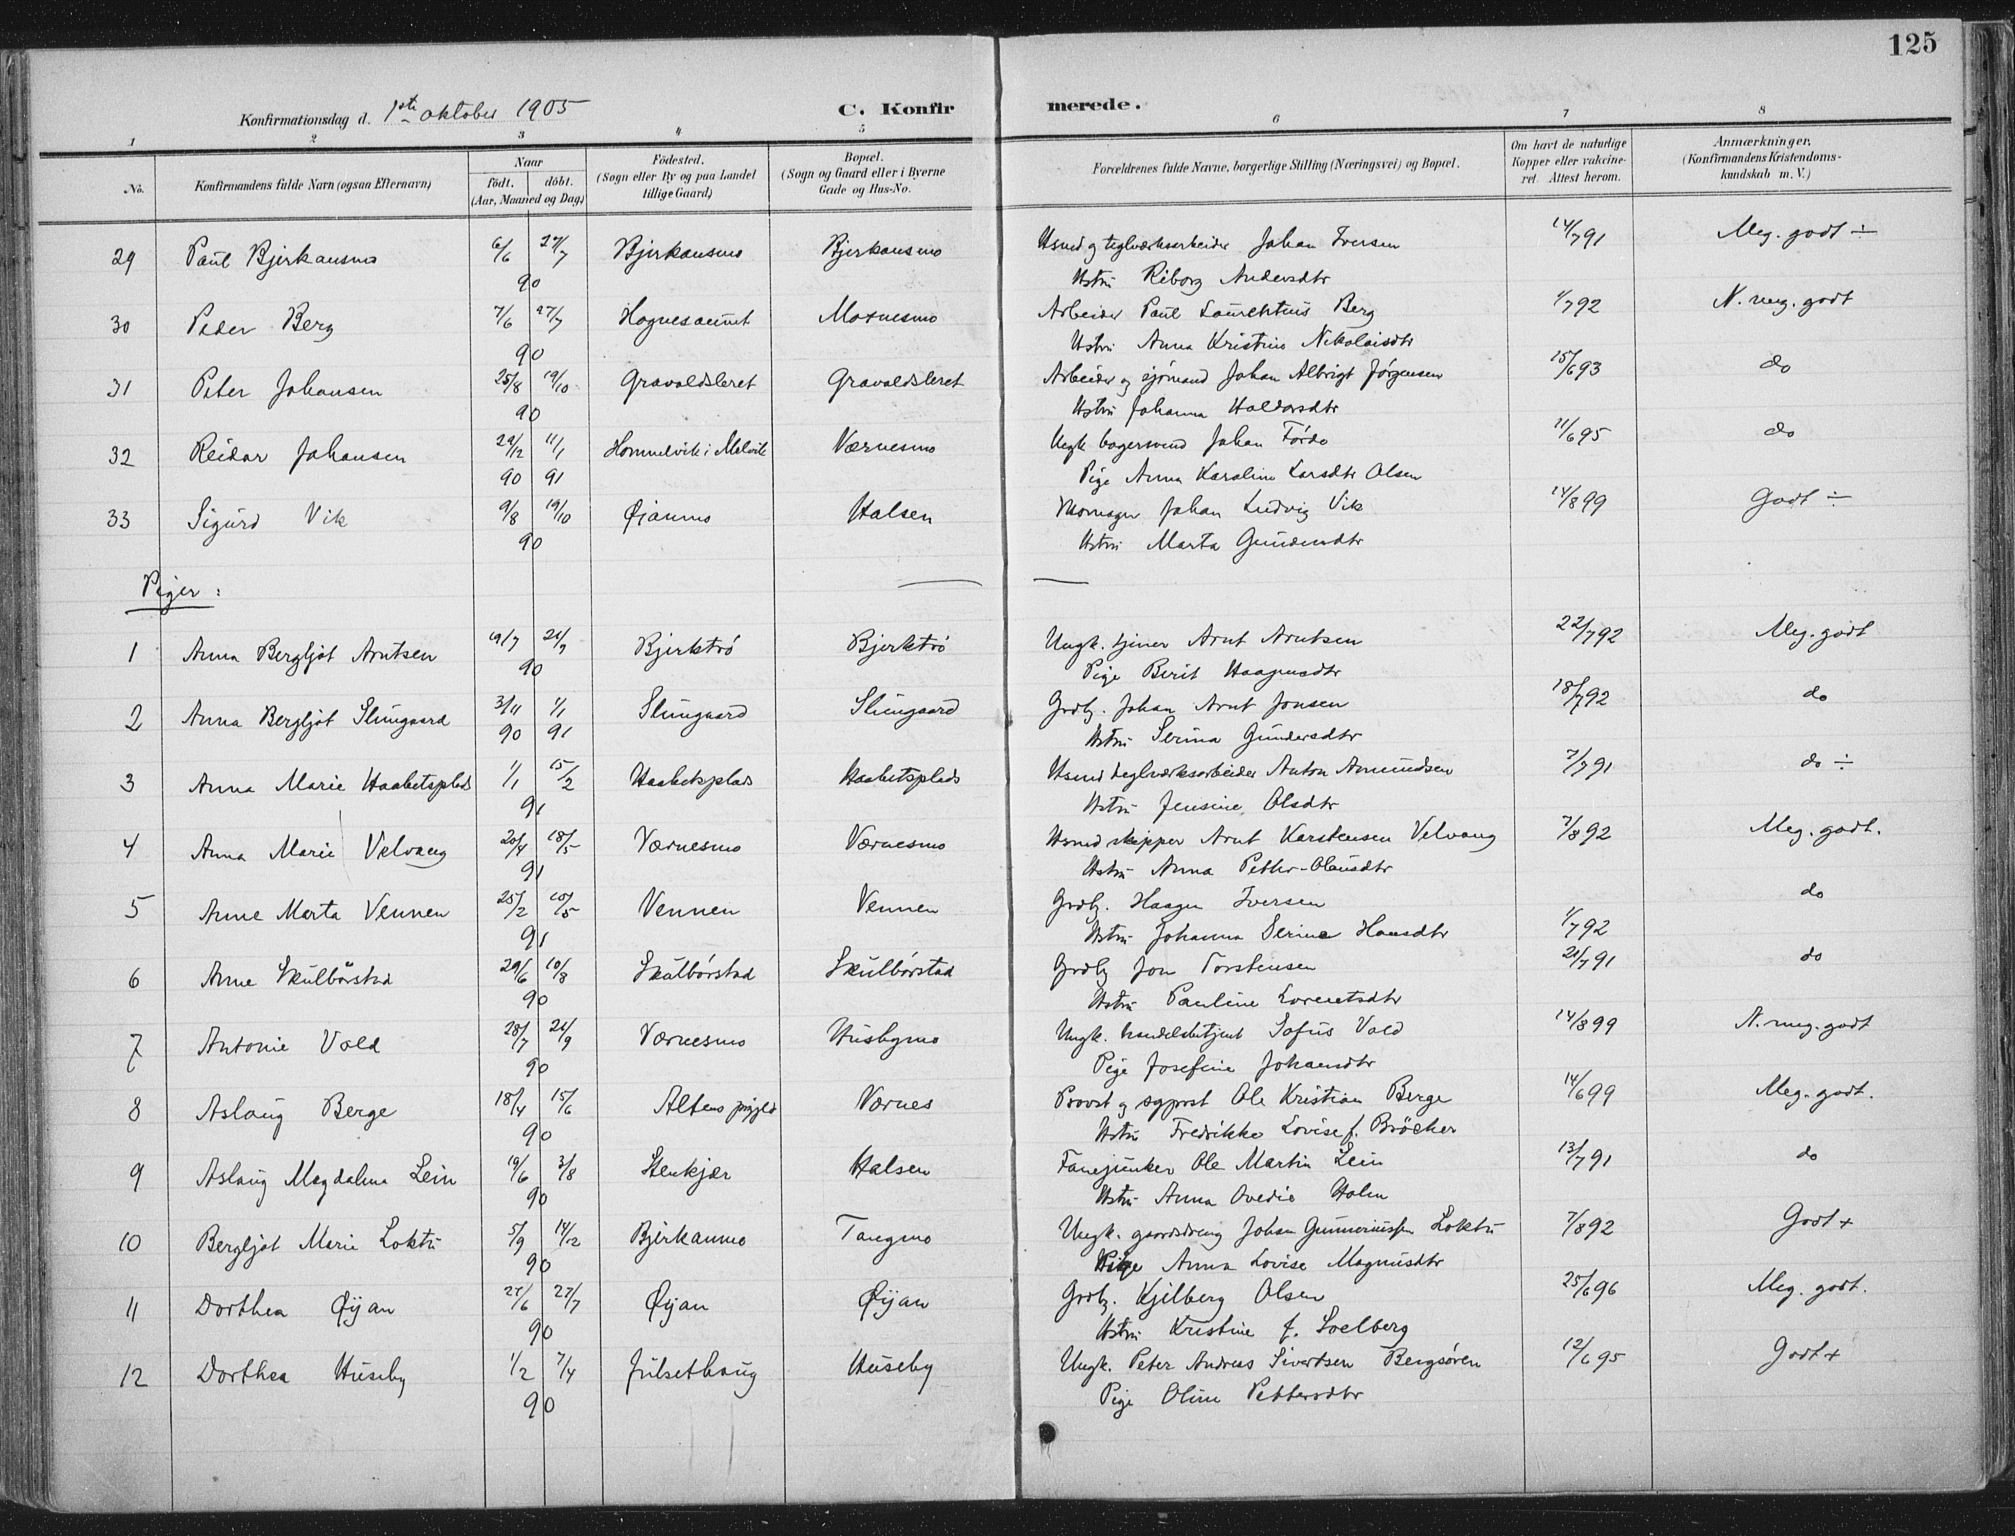 125
Konfirmationsdag d. 1ste oktober 1905 C. Konfir merede.
1 2 3 4 5 6 7 8
No. Konfirmandens fulde Navn (ogsaa Efternavn) Naar födt. döbt. (Aar, Maaned og Dag) Födested. (Sogn eller By og paa Landet tillige Gaard) Bopæl. (Sogn og Gaard eller i Byerne Gade og Hus-No. Forældrenes fulde Navne, borgerlige Stilling (Næringsvei) og Bopæl. Om havt de naturlige Kopper eller vakcineret. Attest herom. Anmærkninger. (Konfirmandens Kristendomskundskab m. V.)
29 Paul Bjerkansmo 6/6 27/7 Bjerkansmo Bjerkansmo Husmd og teglværksarbeider Johan Iversen 14/7 91 Meg. godt ÷
90 Hstru Riborg Andersdtr
30 Peder Berg 7/6 27/7 Hognesaunet Moxnesmo Arbeider Paul Laurentius Berg 1/7 92 N. meg. godt
90 Hstru Anna Kristine Nikolaisdtr
31 Peter Johansen 25/8 19/10 Gravaldsleret Gravaldsleret Arbeider og sjömand Johan Albrigt Jørgensen 15/6 93 do
90 Hstru Johanna Haldorsdtr
32 Reidar Johansen 29/12 11/1 Hommelvik i Malvik Værnesmo Ungk. bagersvend Johan Förde 11/6 95 do
90 91 Pige Anna Karoline Larsdtr Olsen
33 Sigurd Vik 9/8 19/10 Øianmo Halsen Johan Ludvig Vik 14/8 99 Godt ÷
90 Hstru Marta
Piger:
1 Anna Bergljot Arntsen 19/7 21/9 Bjerktrö Bjerktrö Ungk. tjener Arnt Arntsen 22/7 92 Meg. godt
90 Pige Berit Haagensdtr
2 Anna Bergljot Slungaard 3/11 1/1 Slungaard Slungaard Grdbr. Johan Arnt Jonsen 18/7 92 do
90 91 Hstru Serina Gundersdtr
3 Anna Marie Haabetsplads 1/1 15/2 Haabetsplads Haabetsplads Husmd teglværksarbeider Anton Amundsen 7/7 91 do ÷
91 Hstru Jensine Olsdtr
4 Anna Marie Velvang 20/4 18/5 Værnesmo Værnesmo Husmd skipper Arnt Karstensen Velvang 7/8 92 Meg. godt.
91 Hstru Anna Petter-Olausdtr
5 Anne Marta Vennen 25/2 10/5 Vennen Vennen Grdbr. Haagen Iversen do
91 Hstru Johanna Serine Hansdtr 1/7 92
6 Anne Skulbörstad 29/6 10/8 Skulbörstad Skulbörstad Grdbr Jon Torstensen 21/7 91 do
90 Hstru Pauline Lorentsdtr
7 Antonie Vold 28/7 21/9 Værnesmo Husbymo Ungk. handelsbetjent Sofus Vold 14/8 99 N. meg. godt
90 Pige Josefine Johansdtr
8 Aslaug Berge 18/4 15/6 Altens prgjeld Værnes Provst og sgprst Ole Kristian Berge 14/6 99 Meg. godt.
90 Hstru Fredrikke Lovise f. Bröcker
9 Aslaug Magdalena Lein 19/6 3/8 Stenkjær Halsen Fanejunker Ole Martin Lein 13/7 91 do
90 Hstru Anna Ovedie Holm
10 Bergljot Marie Loktu 5/9 14/12 Bjerkanmo Tangmo Ungk. gaardsdreng Johan Gunneriussen Loktu 7/8 92 Godt +
90 Pige Anna Lovise Magnusdtr
11 Dorthea Øyan 27/6 27/7 Øyan Øyan Grdbr. Kjelberg Olsen 25/6 96 Meg. godt.
90 Hstru Kristine f. Soelberg
12 Dorthea Huseby 1/2 7/4 Julsethaug Huseby Ungk. Peter Andreas Sivertsen Bergsören 12/6 95 Godt +
90 Pige Oline Pettersdtr